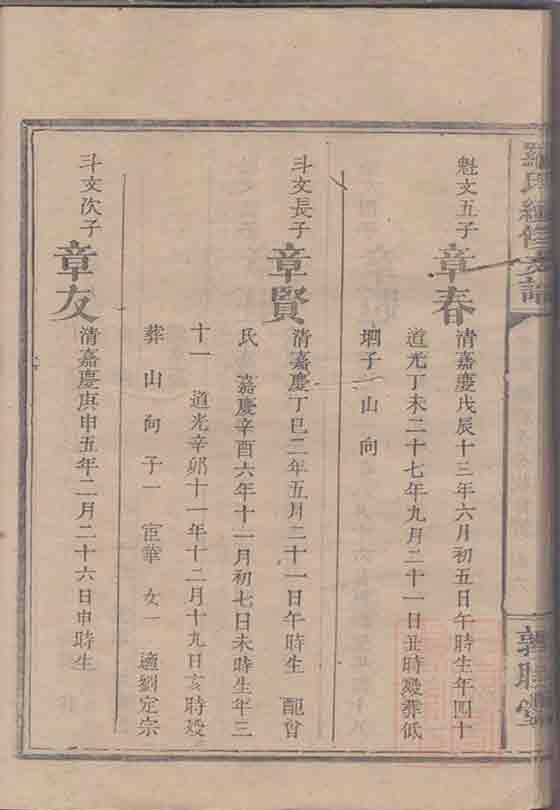 羅氏經修支譜
魁文五子
章春
清嘉慶戊辰十三年六月初五日午時生年四十
道光丁未二十七年九月二十一日丑時殁葬低
堋子 山向
斗文長子
章賢
清嘉慶丁巳二年五月二十一日午時生 配曾
氏 嘉慶辛酉六年十一月初七日未時生年三
十一 道光辛卯十一年十二月十九日亥時殁
葬 山向 子一 宦華 女一 適劉定宗
斗文次子
章友
清嘉慶庚申五年二月二十六日申時生
敦睦堂